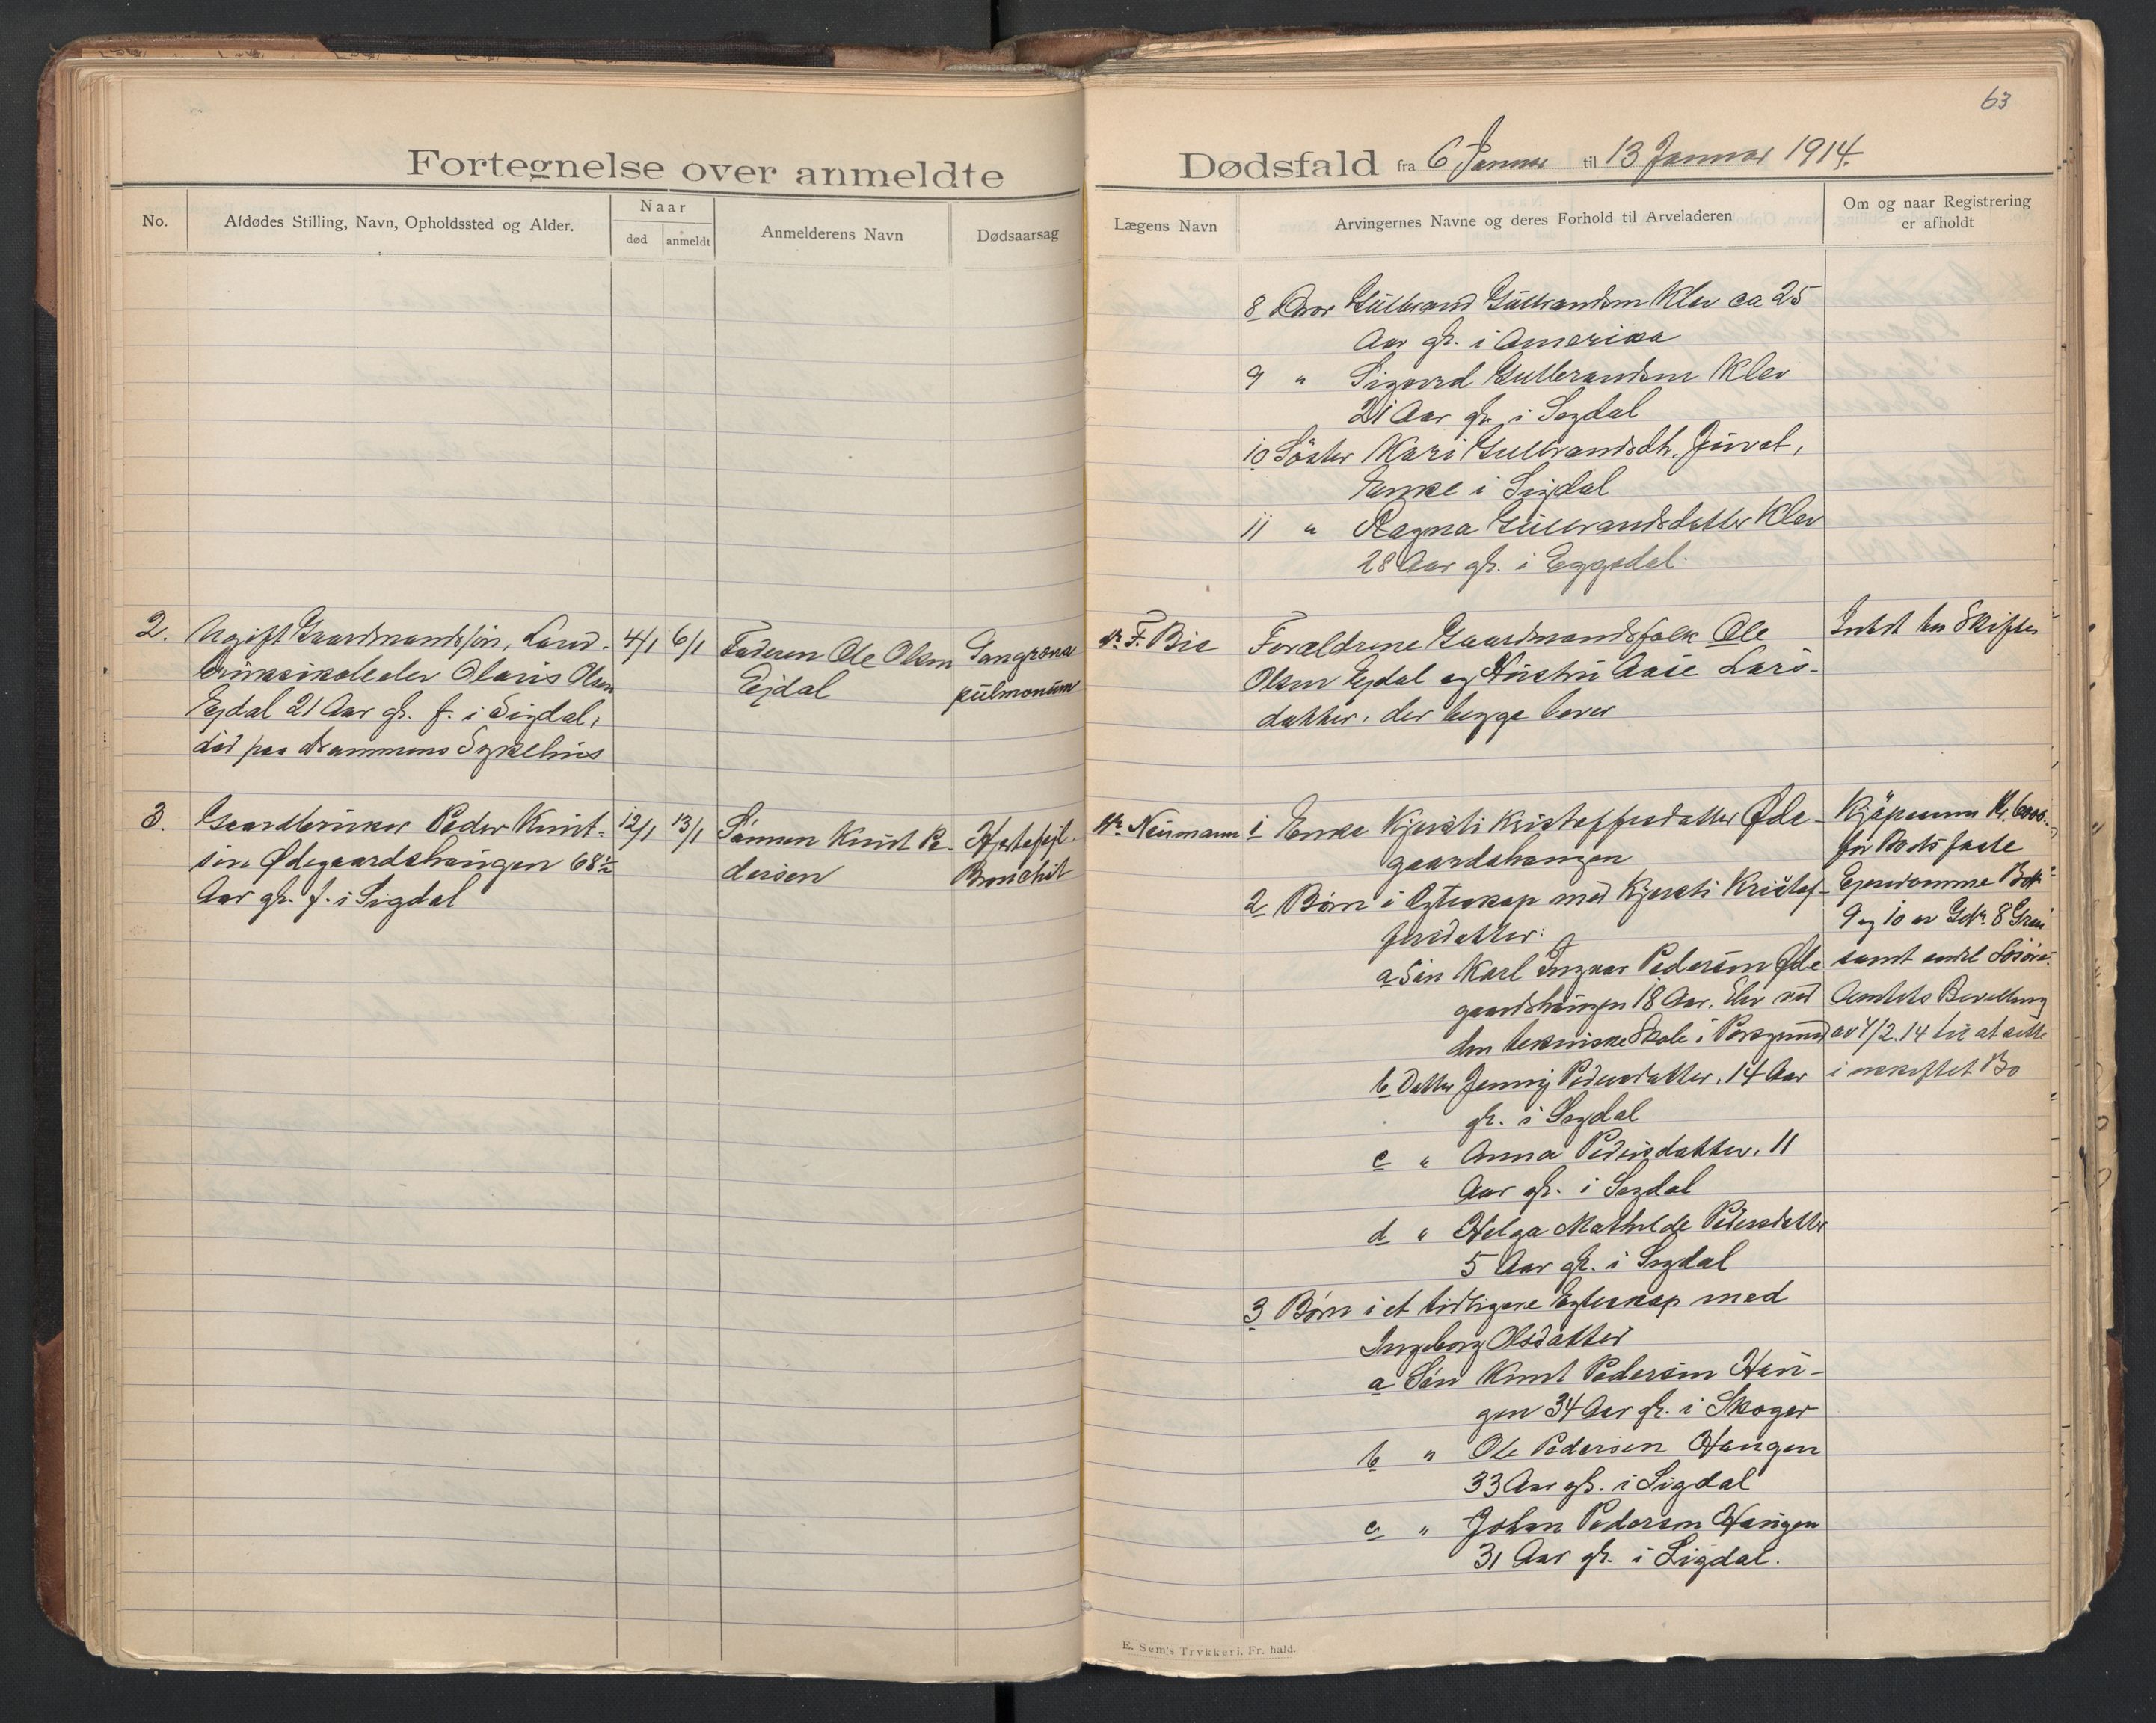 63
Fortegnelse over anmeldte
Dødsfald fra 6 Januar til 13 Januar 1914.
No.
Afdødes Stilling, Navn, Opholdssted og Alder.
Naar
død
anmeldt
Anmelderens Navn
Dødsaarsag
Lægens Navn
Arvingernes Navne og deres Forhold til Arveladeren
Om og naar Registrering
er afholdt
8 Bror Gulbrand Gulbrandsen Klev ca 25
Aar gl. i Amerika
9 " Sigurd Gulbrandsen Klev
21 Aar gl. i Sigdal
10 Søster Kari Gulbrandsdtr. Juvet,
Enke i Sigdal
11 " Ragna Gulbrandsdatter Klev
28 Aar gl. i Eggedal.
2.
Ugift Gaardmandssøn, Land-
bruksskoleelev Olaris Olsen
Ejdal 21 Aar gl. f. i Sigdal,
død paa Drammens Sykehus
4/1
6/1
Faderen Ole Olsen
Ejdal
Gangræna
pulmonum
Dr. F. Bie
Forældrene Gaardmandsfolk Ole
Olsen Ejdal og Hustru Aase Lars-
datter, der begge lever
Intet til Skifte
3.
Gaardbruker Peder Knut-
sen Ødegaardshaugen 68½
Aar gl. f. i Sigdal
12/1
13/1
Sønnen Knut Pe-
dersen
Hjertefejl
Bronchit
Dr. Neumann
1 Enke Kjersti Kristoffersdatter Øde-
gaardshaugen
2 Børn i Egteskap med Kjersti Kristof-
fersdatter:
a Søn Karl Ingvar Pedersen Øde
gaardshaugen 18 Aar. Elev ved
den tekniske Skole i Porsgrund
b Datter Jenny Pedersdatter, 14 Aar
gl. i Sigdal
c " Anna Pedersdatter, 11
Aar gl. i Sigdal
d " Helga Mathilde Pedersdatter
5 Aar gl. i Sigdal
3 Børn i et tidligere Egteskap med
Ingeborg Olsdatter
a Søn Knut Pedersen Hau-
gen 34 Aar gl. i Skoger
b " Ole Pedersen Haugen
33 Aar gl. i Sigdal
c " Johan Pedersen Haugen
31 Aar gl. i Sigdal.
Kjøpesum Kr. 6000.
for Boets faste
Ejendomme Bnr
9 og 10 av Gnr. 8
samt endel Løsøre.
Amtets Bevilling
av 4/2.14 til at sitte
i uskiftet Bo
E. Sem's Trykkeri, Fr. hald.